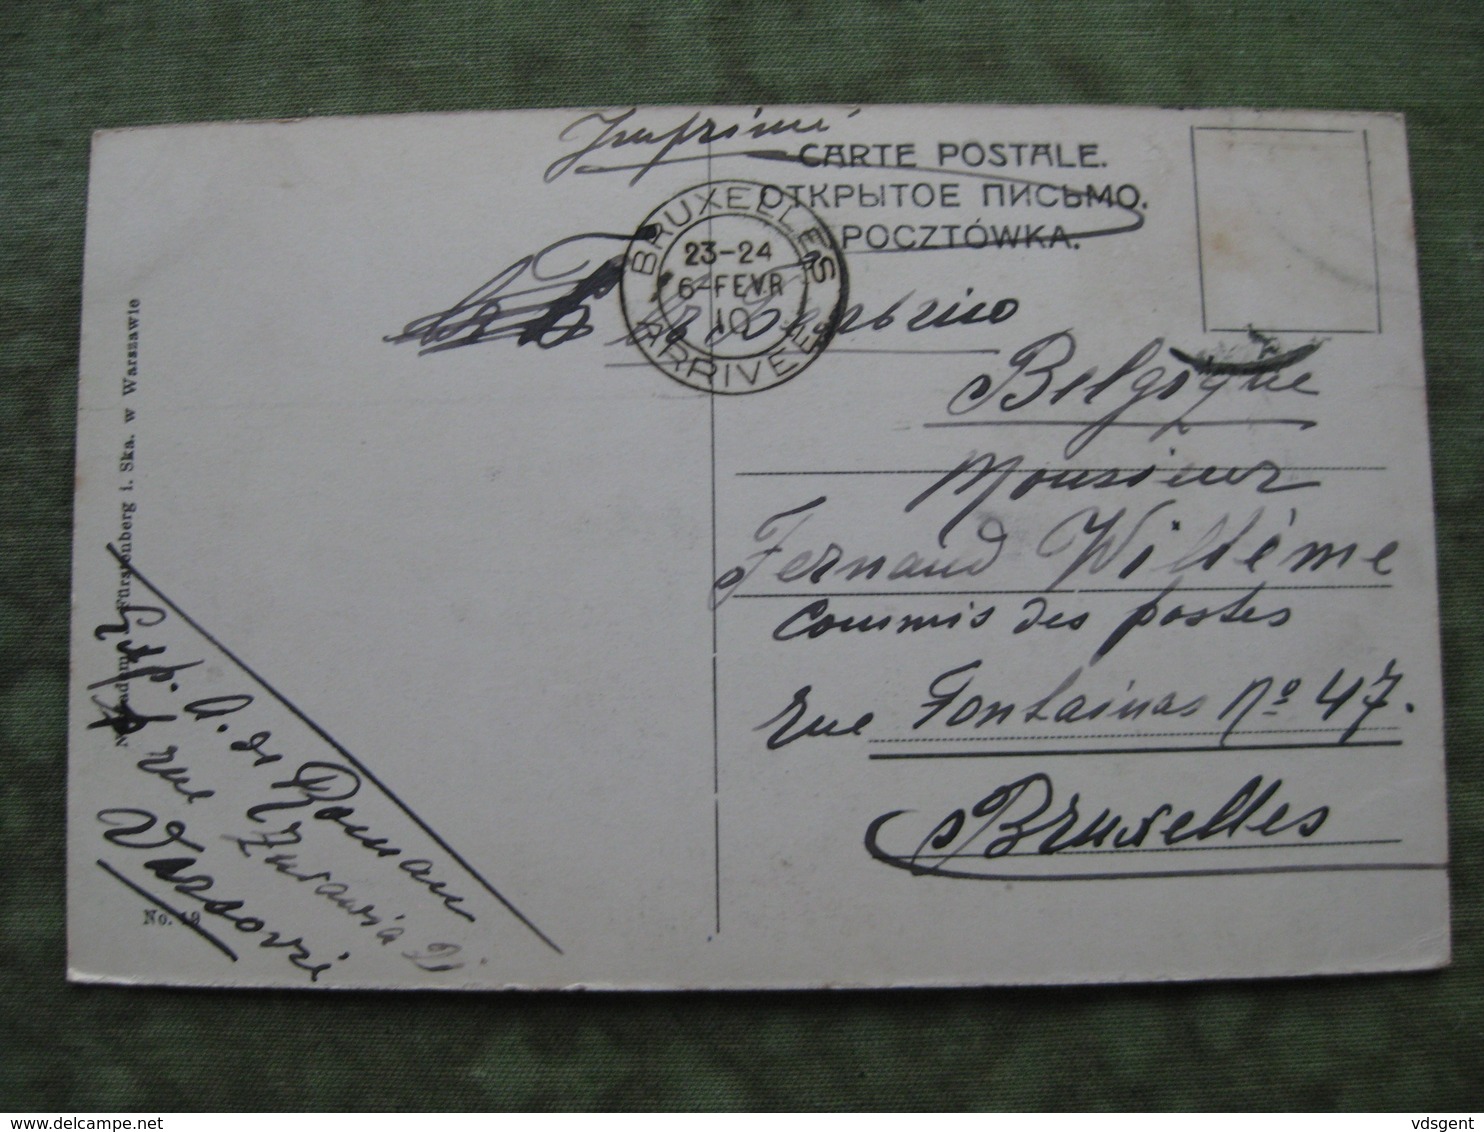 Imprimé
CARTE POSTALE.
ОТКРЫТОЕ ПИСЬМО.
POCZTÓWKA.
BRUXELLES
23-24
6-FEVR
10
ARRIVEE
Belgique
Monsieur
Fernand Willème
Commis des postes
rue Fontainas Nº 47.
Bruxelles
Exp. A. de Roman
rue Żurawia
Varsovie
Fürstenberg i. Ska. w Warszawie
No. 19
delcampe.net
vdsgent